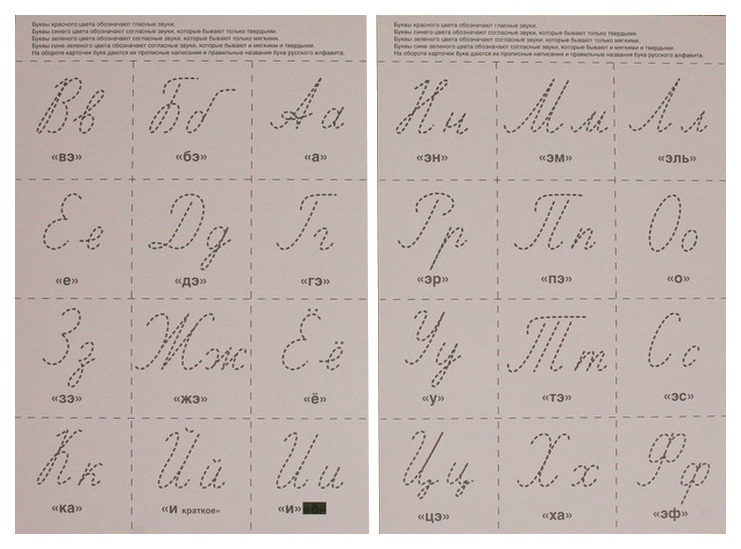 Буквы красного цвета обозначают гласные звуки.
Буквы синего цвета обозначают согласные звуки, которые бывают только твердыми.
Буквы зеленого цвета обозначают согласные звуки, которые бывают только мягкими.
Буквы сине-зеленого цвета обозначают согласные звуки, которые бывают и мягкими и твердыми.
На обороте карточек букв даются их прописные написания и правильные названия букв русского алфавита.
Вв Бб Аа
«вэ» «бэ» «а»
Ее Дд Гг
«е» «дэ» «гэ»
Зз Жж Ёё
«зэ» «жэ» «ё»
Кк Йй Ии
«ка» «и краткое» «и»
Буквы красного цвета обозначают гласные звуки.
Буквы синего цвета обозначают согласные звуки, которые бывают только твердыми.
Буквы зеленого цвета обозначают согласные звуки, которые бывают только мягкими.
Буквы сине-зеленого цвета обозначают согласные звуки, которые бывают и мягкими и твердыми.
На обороте карточек букв даются их прописные написания и правильные названия букв русского алфавита.
Нн Мм Лл
«эн» «эм» «эль»
Рр Пп Оо
«эр» «пэ» «о»
Уу Тт Сс
«у» «тэ» «эс»
Цц Хх Фф
«цэ» «ха» «эф»